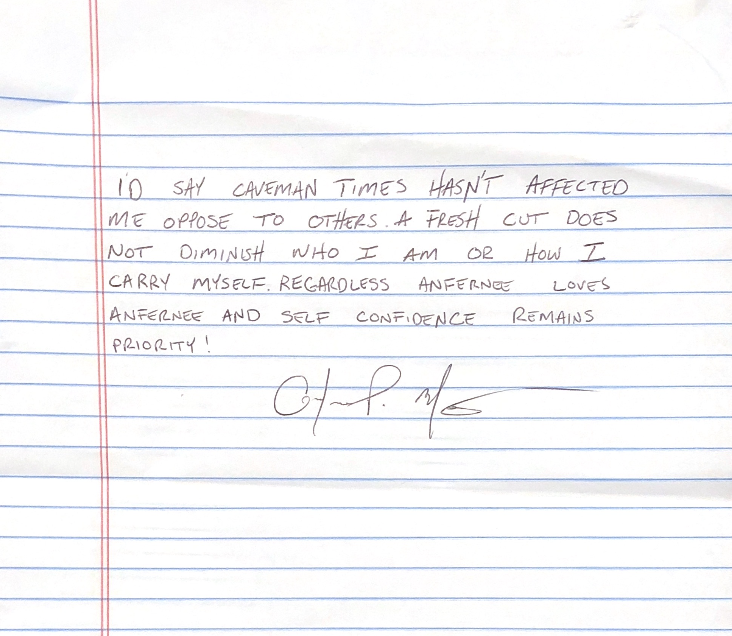 I'D SAY CAVEMAN TIMES HASN'T AFFECTED
ME OPPOSE TO OTHERS. A FRESH CUT DOES
NOT DIMINISH WHO I AM OR HOW I
CARRY MYSELF. REGARDLESS ANFERNEE LOVES
ANFERNEE AND SELF CONFIDENCE REMAINS
PRIORITY!